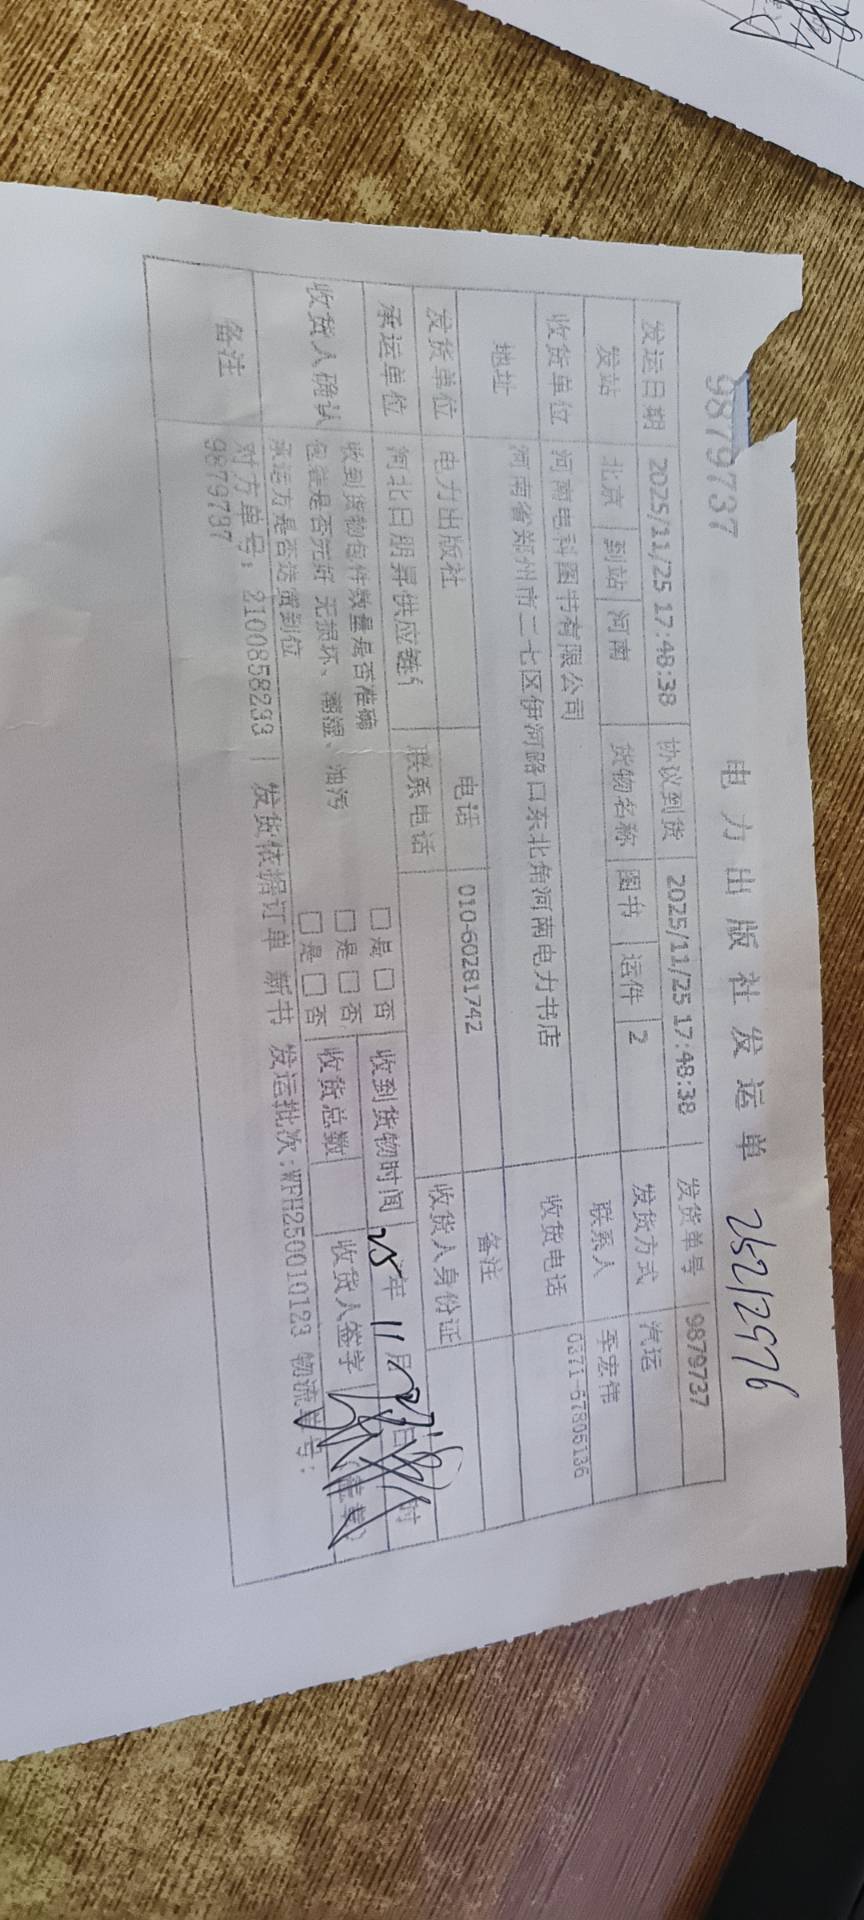 9879737
电力出版社发运单 25212976
发运日期 2025/11/25 17:48:38 协议到货 2025/11/25 17:48:38 发货单号 9879737
发站 北京 到站 河南 货物名称 图书 运件 2 发货方式 汽运
收货单位 河南电科图书有限公司 联系人 李宏伟
地址 河南省郑州市二七区伊河路口东北角河南电力书店 收货电话 0371-67806136
备注
发货单位 电力出版社 电话 010-60281742 收货人身份证
承运单位 河北日朋昇供应链 联系电话
收货人确认 收到货物包件数量是否准确 □是□否 收到货物时间 25年11月27日 时
包装是否完好 无损坏、潮湿、油污 □是□否 收货总数 收货人签字 (盖章)
承运方是否送货到位 □是□否
备注 对方单号：2100858233 | 发货依据订单 新书 发运批次:WFH250010123 物流单号:
9879737